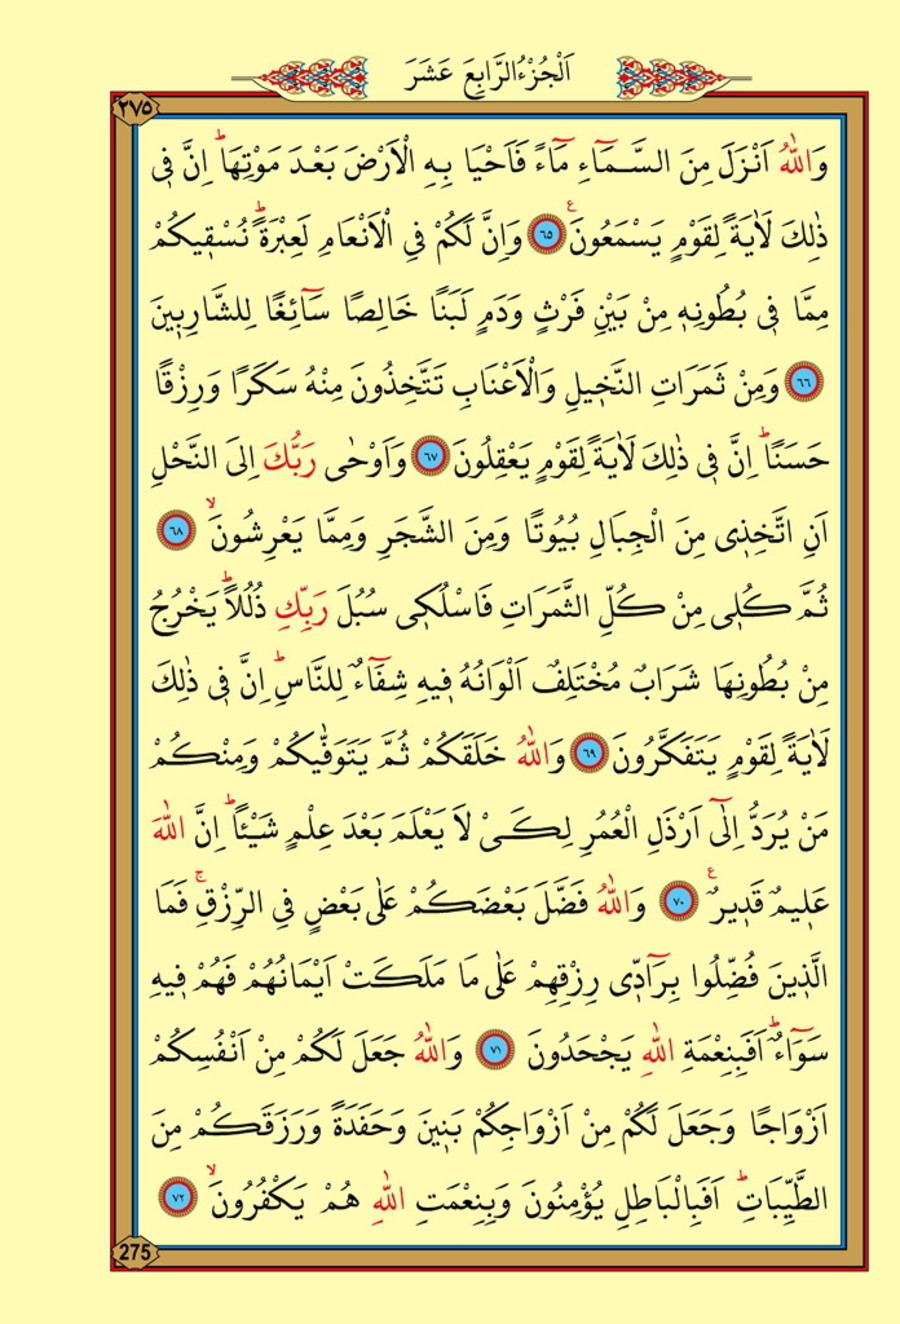 اَلْجُزْءُ الرَّابِعَ عَشَرَ
٢٧٥
وَاللّٰهُ اَنْزَلَ مِنَ السَّمَٓاءِ مَٓاءً فَاَحْيَا بِهِ الْاَرْضَ بَعْدَ مَوْتِهَاۜ اِنَّ ف۪ي
ذٰلِكَ لَاٰيَةً لِقَوْمٍ يَسْمَعُونَ۟ ٦٥ وَاِنَّ لَكُمْ فِي الْاَنْعَامِ لَعِبْرَةًۜ نُسْق۪يكُمْ
مِمَّا ف۪ي بُطُونِه۪ مِنْ بَيْنِ فَرْثٍ وَدَمٍ لَبَنًا خَالِصًا سَٓائِغًا لِلشَّارِب۪ينَ
٦٦ وَمِنْ ثَمَرَاتِ النَّخ۪يلِ وَالْاَعْنَابِ تَتَّخِذُونَ مِنْهُ سَكَرًا وَرِزْقًا
حَسَنًاۜ اِنَّ ف۪ي ذٰلِكَ لَاٰيَةً لِقَوْمٍ يَعْقِلُونَ ٦٧ وَاَوْحٰى رَبُّكَ اِلَى النَّحْلِ
اَنِ اتَّخِذ۪ي مِنَ الْجِبَالِ بُيُوتًا وَمِنَ الشَّجَرِ وَمِمَّا يَعْرِشُونَۙ ٦٨
ثُمَّ كُل۪ي مِنْ كُلِّ الثَّمَرَاتِ فَاسْلُك۪ي سُبُلَ رَبِّكِ ذُلُلًاۜ يَخْرُجُ
مِنْ بُطُونِهَا شَرَابٌ مُخْتَلِفٌ اَلْوَانُهُ ف۪يهِ شِفَٓاءٌ لِلنَّاسِۜ اِنَّ ف۪ي ذٰلِكَ
لَاٰيَةً لِقَوْمٍ يَتَفَكَّرُونَ ٦٩ وَاللّٰهُ خَلَقَكُمْ ثُمَّ يَتَوَفّٰيكُمْ وَمِنْكُمْ
مَنْ يُرَدُّ اِلٰٓى اَرْذَلِ الْعُمُرِ لِكَيْ لَا يَعْلَمَ بَعْدَ عِلْمٍ شَيْـًٔاۜ اِنَّ اللّٰهَ
عَل۪يمٌ قَد۪يرٌ۟ ٧٠ وَاللّٰهُ فَضَّلَ بَعْضَكُمْ عَلٰى بَعْضٍ فِي الرِّزْقِۚ فَمَا
الَّذ۪ينَ فُضِّلُوا بِرَٓادّ۪ي رِزْقِهِمْ عَلٰى مَا مَلَكَتْ اَيْمَانُهُمْ فَهُمْ ف۪يهِ
سَوَٓاءٌۜ اَفَبِنِعْمَةِ اللّٰهِ يَجْحَدُونَ ٧١ وَاللّٰهُ جَعَلَ لَكُمْ مِنْ اَنْفُسِكُمْ
اَزْوَاجًا وَجَعَلَ لَكُمْ مِنْ اَزْوَاجِكُمْ بَن۪ينَ وَحَفَدَةً وَرَزَقَكُمْ مِنَ
الطَّيِّبَاتِۜ اَفَبِالْبَاطِلِ يُؤْمِنُونَ وَبِنِعْمَتِ اللّٰهِ هُمْ يَكْفُرُونَۙ ٧٢
275